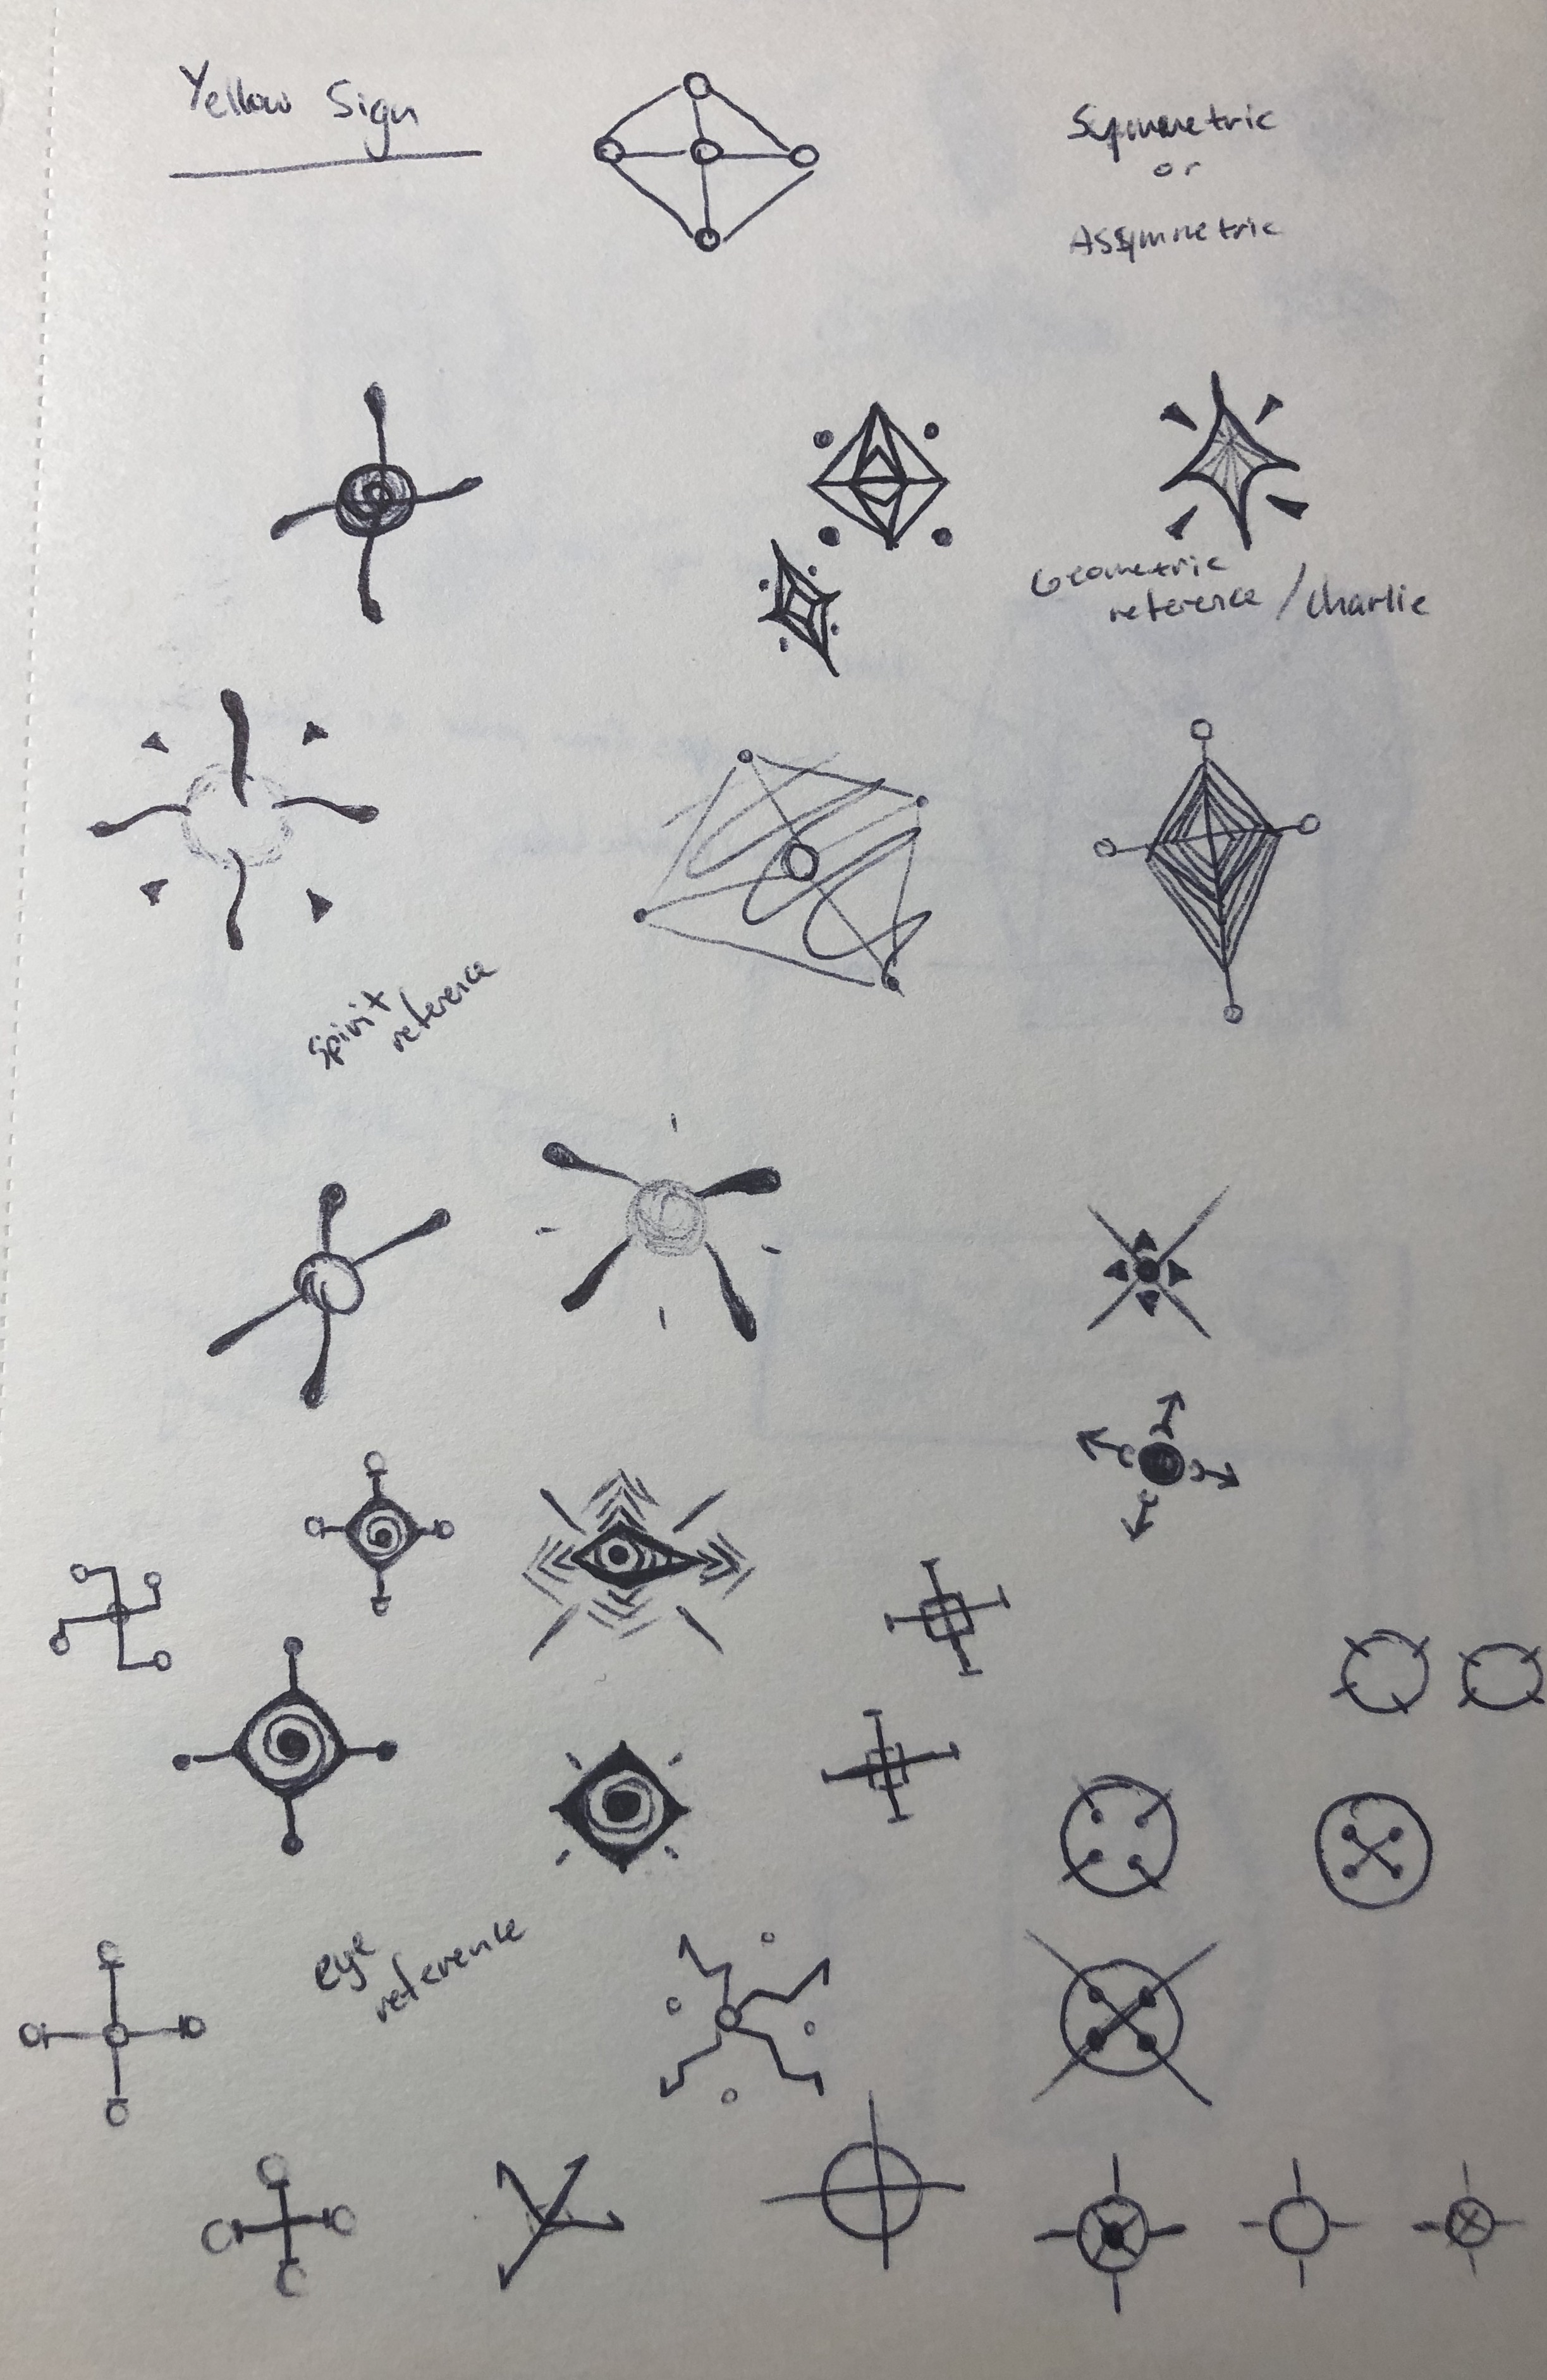 Yellow Sign
Symmetric
or
Assymmetric
Geometric
reference / Charlie
Spirit
reference
eye
reference